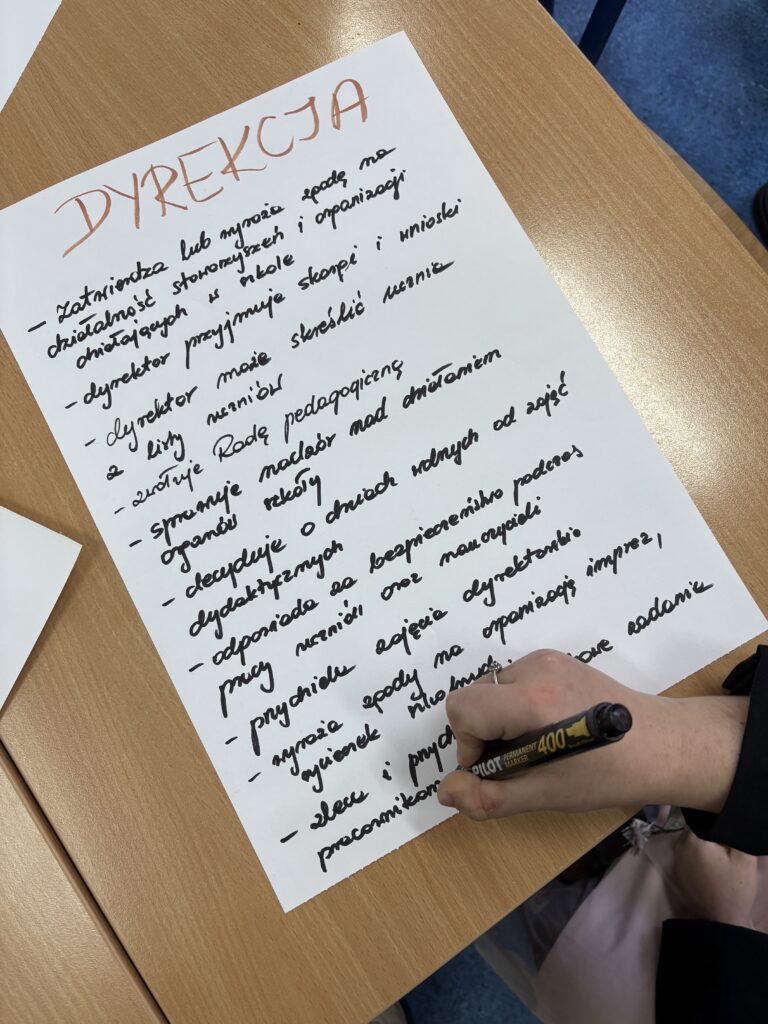 DYREKCJA
- Zatwierdza lub wyraża zgodę na
działalność stowarzyszeń i organizacji
działających w szkole
- dyrektor przyjmuje skargi i wnioski
- dyrektor może skreślić ucznia
z listy uczniów
- zwołuje Radę pedagogiczną
- sprawuje nadzór nad działaniem
organów szkoły
- decyduje o dniach wolnych od zajęć
dydaktycznych
- odpowiada za bezpieczeństwo podczas
pracy uczniów oraz nauczycieli
- przydziela zajęcia dyrektorskie
- wyraża zgody na organizację imprez,
wycieczek
- zleca i zadania
pracownikom
PILOT PERMANENT MARKER 400